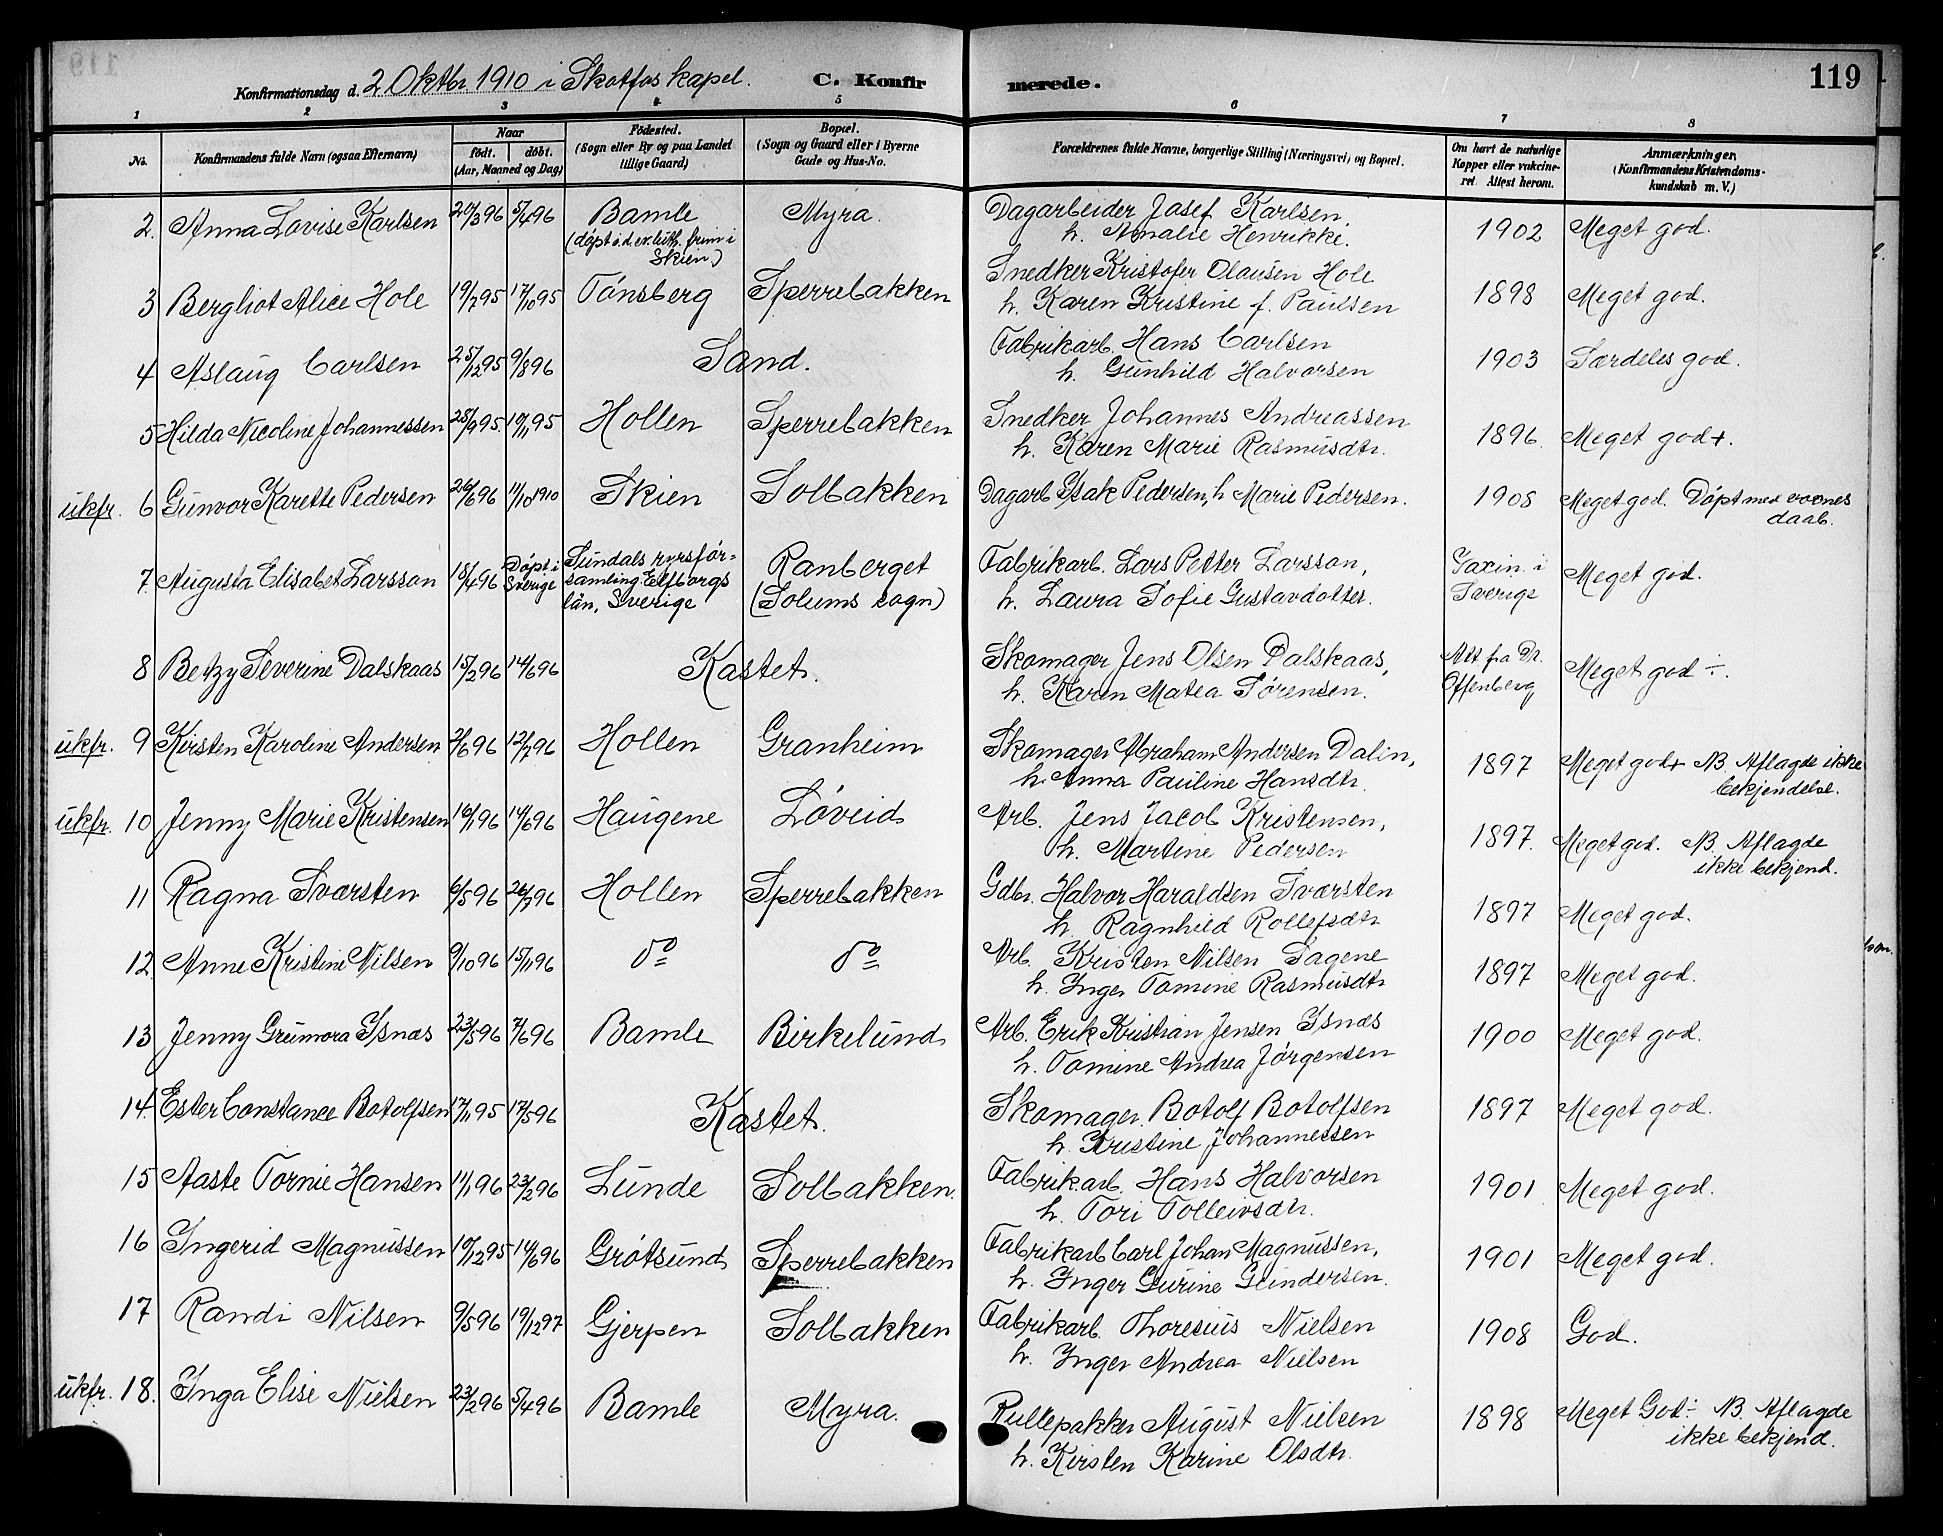 119
Konfirmationsdag d. 2 Oktbr. 1910 i Skotfos kapel. C. Konfirmerede.
1 2 3 4 5 6 7 8
No. Konfirmandens fulde Navn (ogsaa Efternavn) Naar født. døbt. (Aar, Maaned og Dag) Fødested. (Sogn eller By og paa Landet tillige Gaard) Bopæl. (Sogn og Gaard eller i Byerne Gade og Hus-No. Forældrenes fulde Navne, borgerlige Stilling (Næringsvei) og Bopæl. Om havt de naturlige Kopper eller vakcineret. Attest herom. Anmærkninger, (Konfirmandens Kristendomskundskab m. V.)
2. Anna Lovise Karlsen 20/3 96 5/4 96 Bamle Myra. Dagarbeider Josef Karlsen, 1902 Meget god.
(døpt i d. ev. luth. frim i Skien) h. Amalie Henrikke.
3 Bergliot Alice Hole 19/7 95 17/10 95 Tønsberg Sperrebakken Snedker Kristofer Olausen Hole 1898 Meget god.
h. Karen Kristine f. Paulsen
4 Aslaug Carlsen 25/12 95 9/8 96 Sand. Fabrikarb. Hans Carlsen 1903 Særdeles god.
h. Gunhild Halvorsen
5 Hilda Nicoline Johannessen 28/9 95. 10/11 95 Hollen Sperrebakken Snedker Johannes Andreassen 1896 Meget god+.
h. Karen Marie Rasmusdtr.
ukfr. 6 Gunvor Karette Pedersen 26/6 96 11/10 1910 Skien Solbakken Dagarb Isak Pedersen, h Marie Pedersen. 1908 Meget god. Døpt med voxnes daab.
7. Augusta Elisabet Larsson 18/4 96 Døpt i Sverige Sundals församling Elfborgs län, Sverige Ranberget (Solums sogn) Fabrikarb. Lars Petter Larsson, Vaxin. i Sverige Meget god.
h. Laura Sofie Gustavdotter.
8 Betzy Severine Dalskaas 15/2 96 14/6 96 Kastet. Skomager Jens Olsen Dalskaas, Att fra Dr. Offenberg Meget god ÷.
h. Karen Matea Sørensen.
ukfr. 9 Kirsten Karoline Andersen 2/6 96 12/7 96 Hollen Granheim Skomager Abraham Andersen Dalin, 1897 Meget god+ NB. Aflagde ikke bekjendelse.
h. Anna Pauline Hansdtr.
ukfr. 10 Jenny Marie Kristensen 16/1 96 14/6 96 Haugene Løveid Arb. Jens Jacob Kristensen, 1897. Meget god. NB. Aflagde ikke bekjend.
h. Martine Pedersen
11 Ragna Sværsten 6/5 96 26/7 96 Hollen Sperrebakken Gdbr. Halvor Haraldsen Sværsten 1897 Meget god.
h. Ragnhild Rollefsdtr
12. Anne Kristine Nilsen 9/10 96 15/11 96 do do Arb. Kristen Nilsen Sagene 1897 Meget god.
h. Inger Tomine Rasmusdtr
13 Jenny Gunvora Isnæs 23/5 96 7/6 96 Bamle Birkelund Arb. Erik Kristian Jensen Isnæs 1900 Meget god.
h. Tomine Andrea Jørgensen
14. Ester Constance Botolfsen 17/11 95 17/5 96 Kastet. Skomager. Botolf Botolfsen 1897 Meget god.
h. Kristine Johannessen
15 Aaste Tornie Hansen 11/1 96 23/2 96 Lunde Solbakken. Fabrikarb. Hans Halvorsen 1901 Meget god.
h. Tori Tolleivsdtr.
16 Ingerid Magnussen 10/12 95 14/6 96 Grøtsund Sperrebakken Fabrikarb Carl Johan Magnussen, 1901 Meget god.
h. Inger Gurine Gundersen.
17 Randi Nilsen 9/5 96 19/12 97 Gjerpen Solbakken Fabrikarb. Thoresius Nielsen 1908 God.
h. Inger Andrea Nielsen
ukfr. 18. Inga Elise Nielsen 23/2 96 5/4 96 Bamle Myra. Rullepakker August Nielsen 1898 Meget God÷ NB. Aflagde ikke bekjend.
h. Kirsten Karine Olsdtr.